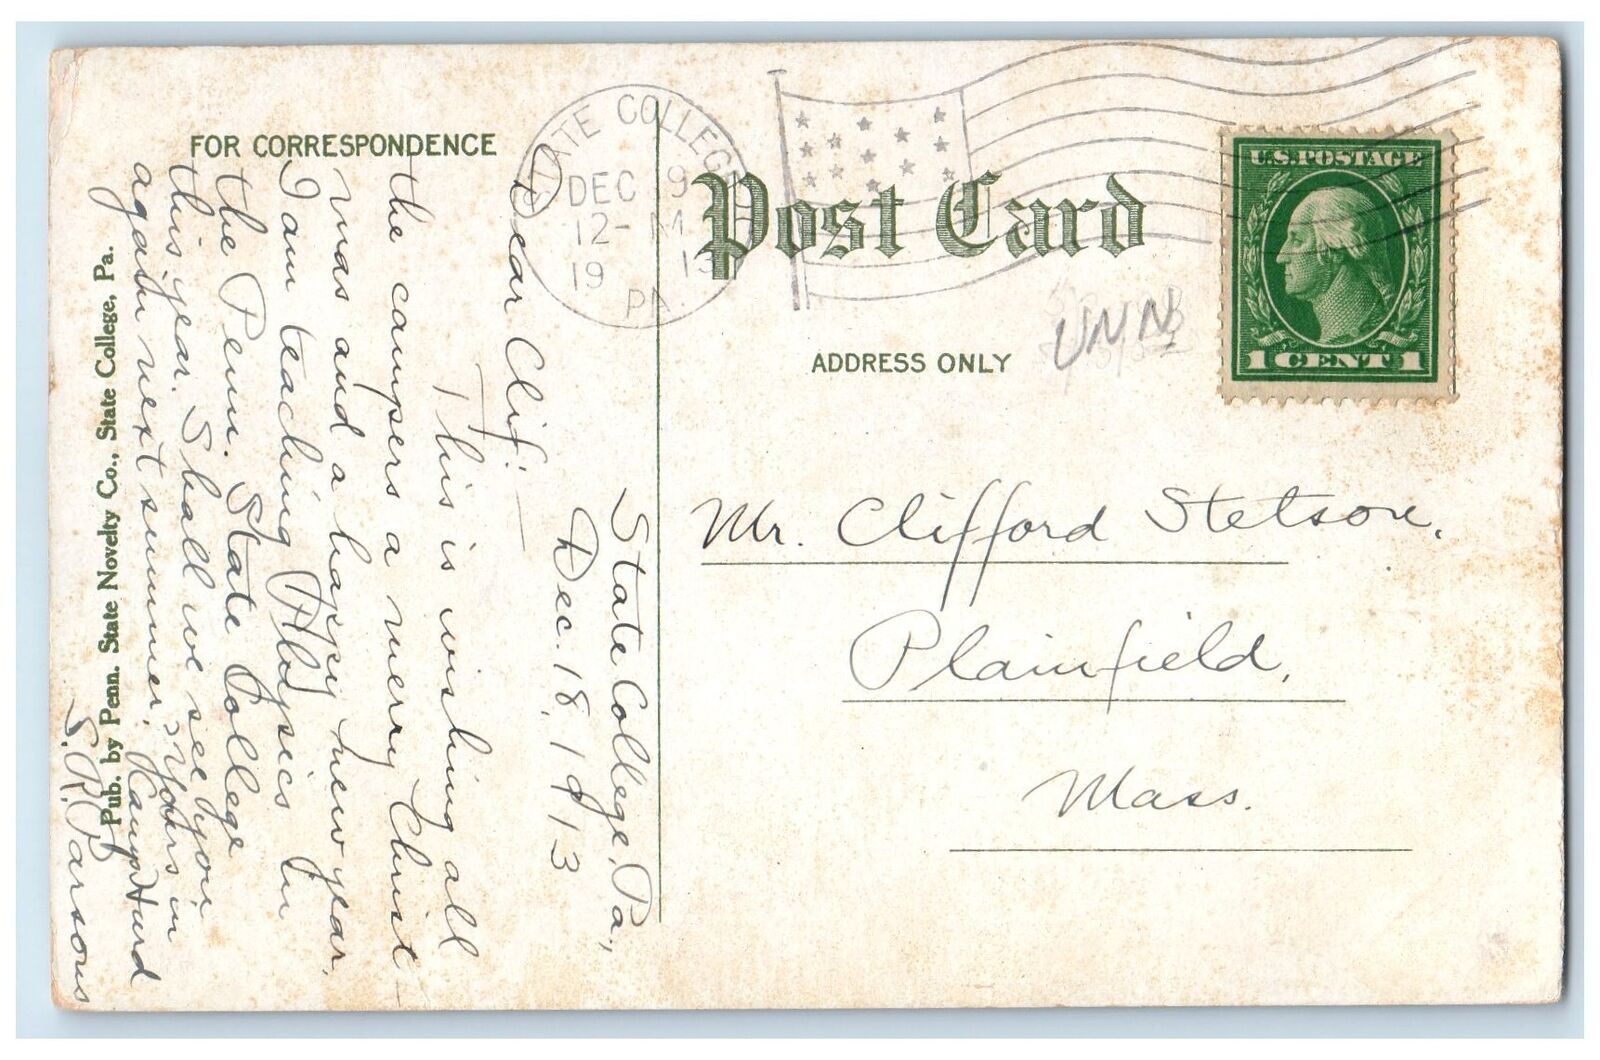 FOR CORRESPONDENCE
State College, Pa.,
Dec. 18, 1913
Dear Clif: —
This is wishing all
the campers a merry Christ-
mas and a happy new year.
I am teaching Physics in
the Penn. State College
this year. Shall we see you
again next summer? Yours in
Camp Hurd
S. R. Parsons
Pub. by Penn. State Novelty Co., State College, Pa.
STATE COLLEGE
DEC 19
12- M
19 13
PA.
Post Card
ADDRESS ONLY
UNN
U.S. POSTAGE
1 CENT 1
Mr. Clifford Stetson,
Plainfield,
Mass.